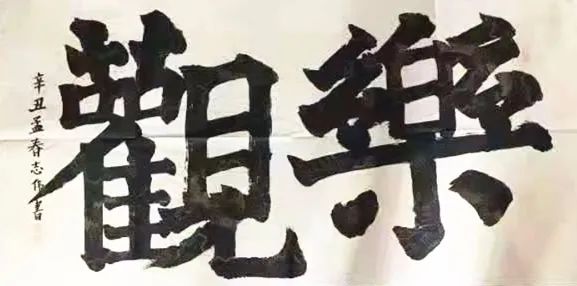 樂觀
辛丑孟春志作書